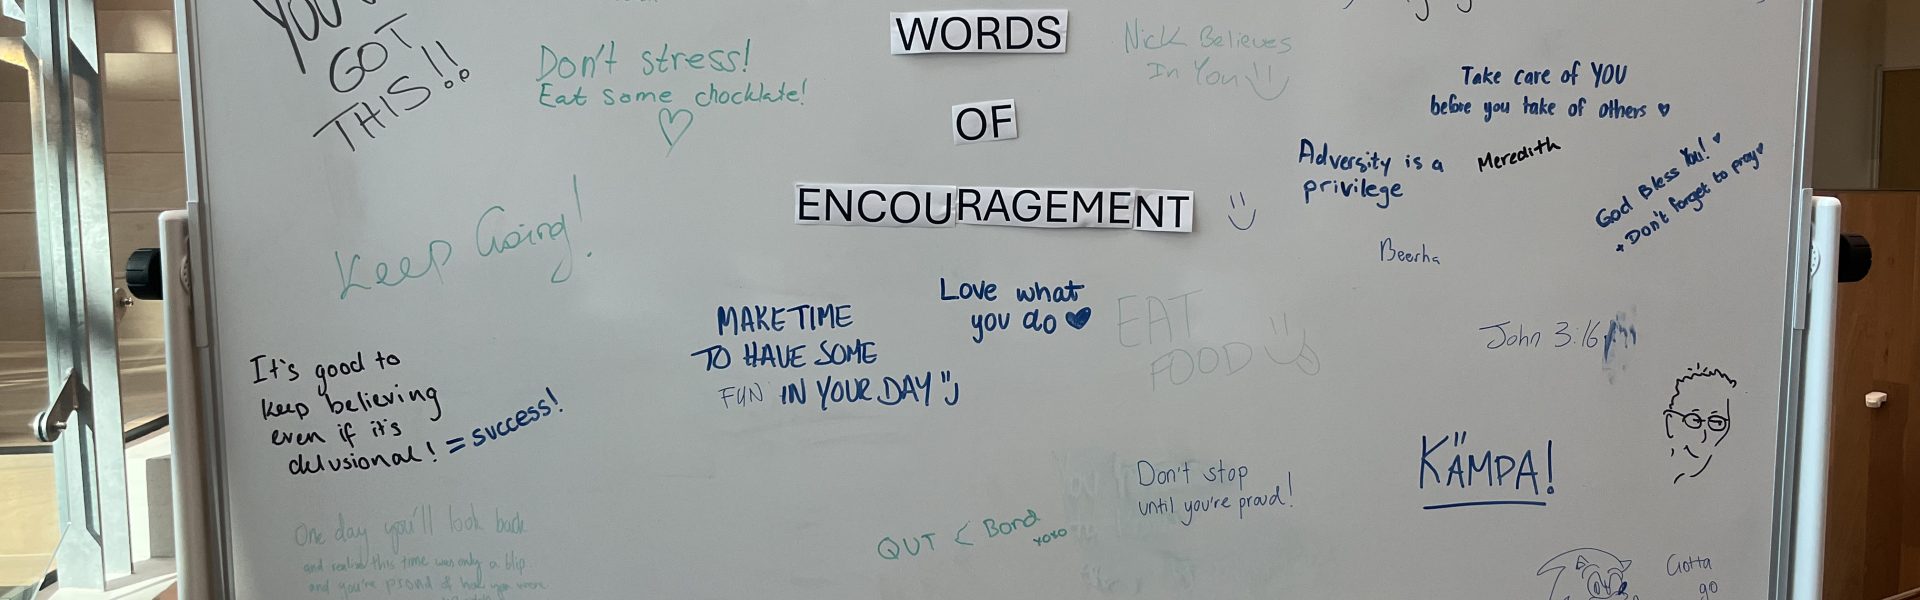 YOU'VE
GOT
THIS!!
Don't stress!
Eat some chocklate!
WORDS
OF
ENCOURAGEMENT
Nick Believes
In You
Take care of YOU
before you take of others
Adversity is a
privilege
Meredith
God Bless You!
+ Don't forget to pray
Beerha
Keep Going!
MAKE TIME
TO HAVE SOME
FUN IN YOUR DAY
Love what
you do
EAT
FOOD
John 3:16
It's good to
keep believing
even if it's
delusional! = success!
KÄMPA!
Don't stop
until you're proud!
QUT < Bond
xoxo
One day you'll look back
and realise this time was only a blip
and you're proud of how you were
Gotta
go